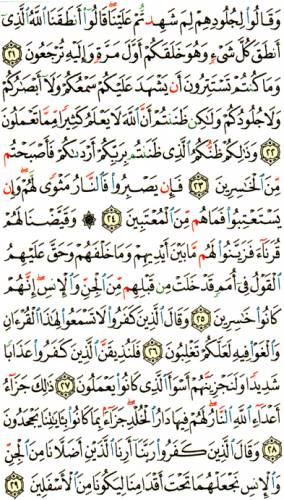 وَقَالُوا۟ لِجُلُودِهِمْ لِمَ شَهِدتُّمْ عَلَيْنَا قَالُوٓا۟ أَنطَقَنَا ٱللَّهُ ٱلَّذِىٓ
أَنطَقَ كُلَّ شَىْءٍ وَهُوَ خَلَقَكُمْ أَوَّلَ مَرَّةٍ وَإِلَيْهِ تُرْجَعُونَ ٢١
وَمَا كُنتُمْ تَسْتَتِرُونَ أَن يَشْهَدَ عَلَيْكُمْ سَمْعُكُمْ وَلَآ أَبْصَٰرُكُمْ
وَلَا جُلُودُكُمْ وَلَٰكِن ظَنَنتُمْ أَنَّ ٱللَّهَ لَا يَعْلَمُ كَثِيرًا مِّمَّا تَعْمَلُونَ
٢٢ وَذَٰلِكُمْ ظَنُّكُمُ ٱلَّذِى ظَنَنتُم بِرَبِّكُمْ أَرْدَىٰكُمْ فَأَصْبَحْتُم
مِّنَ ٱلْخَٰسِرِينَ ٢٣ فَإِن يَصْبِرُوا۟ فَٱلنَّارُ مَثْوًى لَّهُمْ وَإِن
يَسْتَعْتِبُوا۟ فَمَا هُم مِّنَ ٱلْمُعْتَبِينَ ٢٤ ۞ وَقَيَّضْنَا لَهُمْ
قُرَنَآءَ فَزَيَّنُوا۟ لَهُم مَّا بَيْنَ أَيْدِيهِمْ وَمَا خَلْفَهُمْ وَحَقَّ عَلَيْهِمُ
ٱلْقَوْلُ فِىٓ أُمَمٍ قَدْ خَلَتْ مِن قَبْلِهِم مِّنَ ٱلْجِنِّ وَٱلْإِنسِ إِنَّهُمْ
كَانُوا۟ خَٰسِرِينَ ٢٥ وَقَالَ ٱلَّذِينَ كَفَرُوا۟ لَا تَسْمَعُوا۟ لِهَٰذَا ٱلْقُرْءَانِ
وَٱلْغَوْا۟ فِيهِ لَعَلَّكُمْ تَغْلِبُونَ ٢٦ فَلَنُذِيقَنَّ ٱلَّذِينَ كَفَرُوا۟ عَذَابًا
شَدِيدًا وَلَنَجْزِيَنَّهُمْ أَسْوَأَ ٱلَّذِى كَانُوا۟ يَعْمَلُونَ ٢٧ ذَٰلِكَ جَزَآءُ
أَعْدَآءِ ٱللَّهِ ٱلنَّارُ لَهُمْ فِيهَا دَارُ ٱلْخُلْدِ جَزَآءًۢ بِمَا كَانُوا۟ بِـَٔايَٰتِنَا يَجْحَدُونَ
٢٨ وَقَالَ ٱلَّذِينَ كَفَرُوا۟ رَبَّنَآ أَرِنَا ٱلَّذَيْنِ أَضَلَّانَا مِنَ ٱلْجِنِّ
وَٱلْإِنسِ نَجْعَلْهُمَا تَحْتَ أَقْدَامِنَا لِيَكُونَا مِنَ ٱلْأَسْفَلِينَ ٢٩